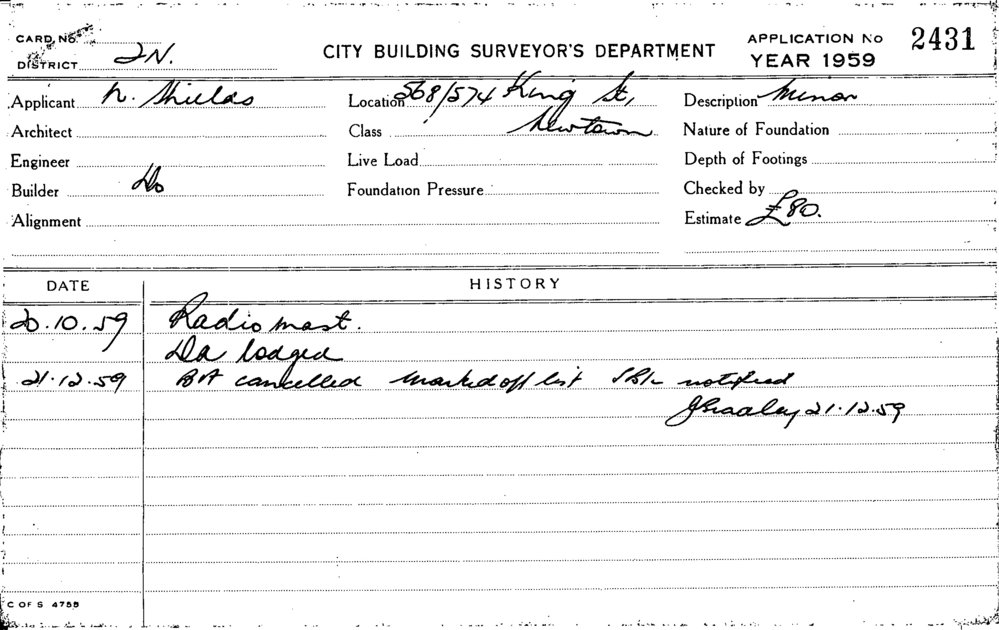 CARD NO
DISTRICT 2N.
CITY BUILDING SURVEYOR'S DEPARTMENT
APPLICATION No 2431
YEAR 1959
Applicant N. Shields
Location 568/574 King St,
Description Minor
Architect
Class Newtown
Nature of Foundation
Engineer
Live Load
Depth of Footings
Builder Do
Foundation Pressure
Checked by
Alignment
Estimate £80.
DATE HISTORY
20.10.59 Radio mast.
Da lodged
21.12.59 BA cancelled marked off list notified
21.12.59
C OF S 4755